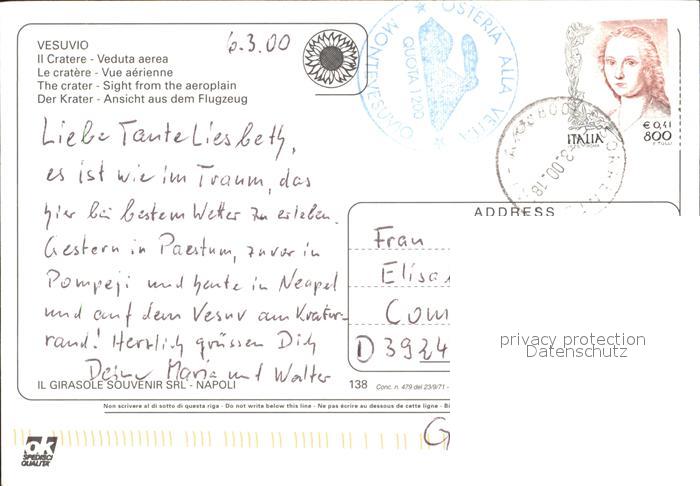 VESUVIO
Il Cratere - Veduta aerea
Le cratère - Vue aérienne
The crater - Sight from the aeroplain
Der Krater - Ansicht aus dem Flugzeug
6.3.00
OSTERIA ALLA VETTA
QUOTA 1200
ITALIA
€ 0,41
800
Liebe Tante Liesbeth,
es ist wie im Traum, das
hier bei bestem Wetter zu erleben.
Gestern in Paestum, zuvor in
Pompeji und heute in Neapel
und auf dem Vesuv am Krater-
rand! Herzlich grüssen Dich
Deine Maria und Walter
ADDRESS
Frau
Elisa
Com
D 3924
privacy protection
Datenschutz
IL GIRASOLE SOUVENIR SRL - NAPOLI
138
Conc. n. 479 del 23/9/71 -
Non scrivere al di sotto di questa riga - Do not write below this line - Ne pas écrire au dessous de cette ligne - Bi
G
ok
SPEDISCI
QUALITÀ